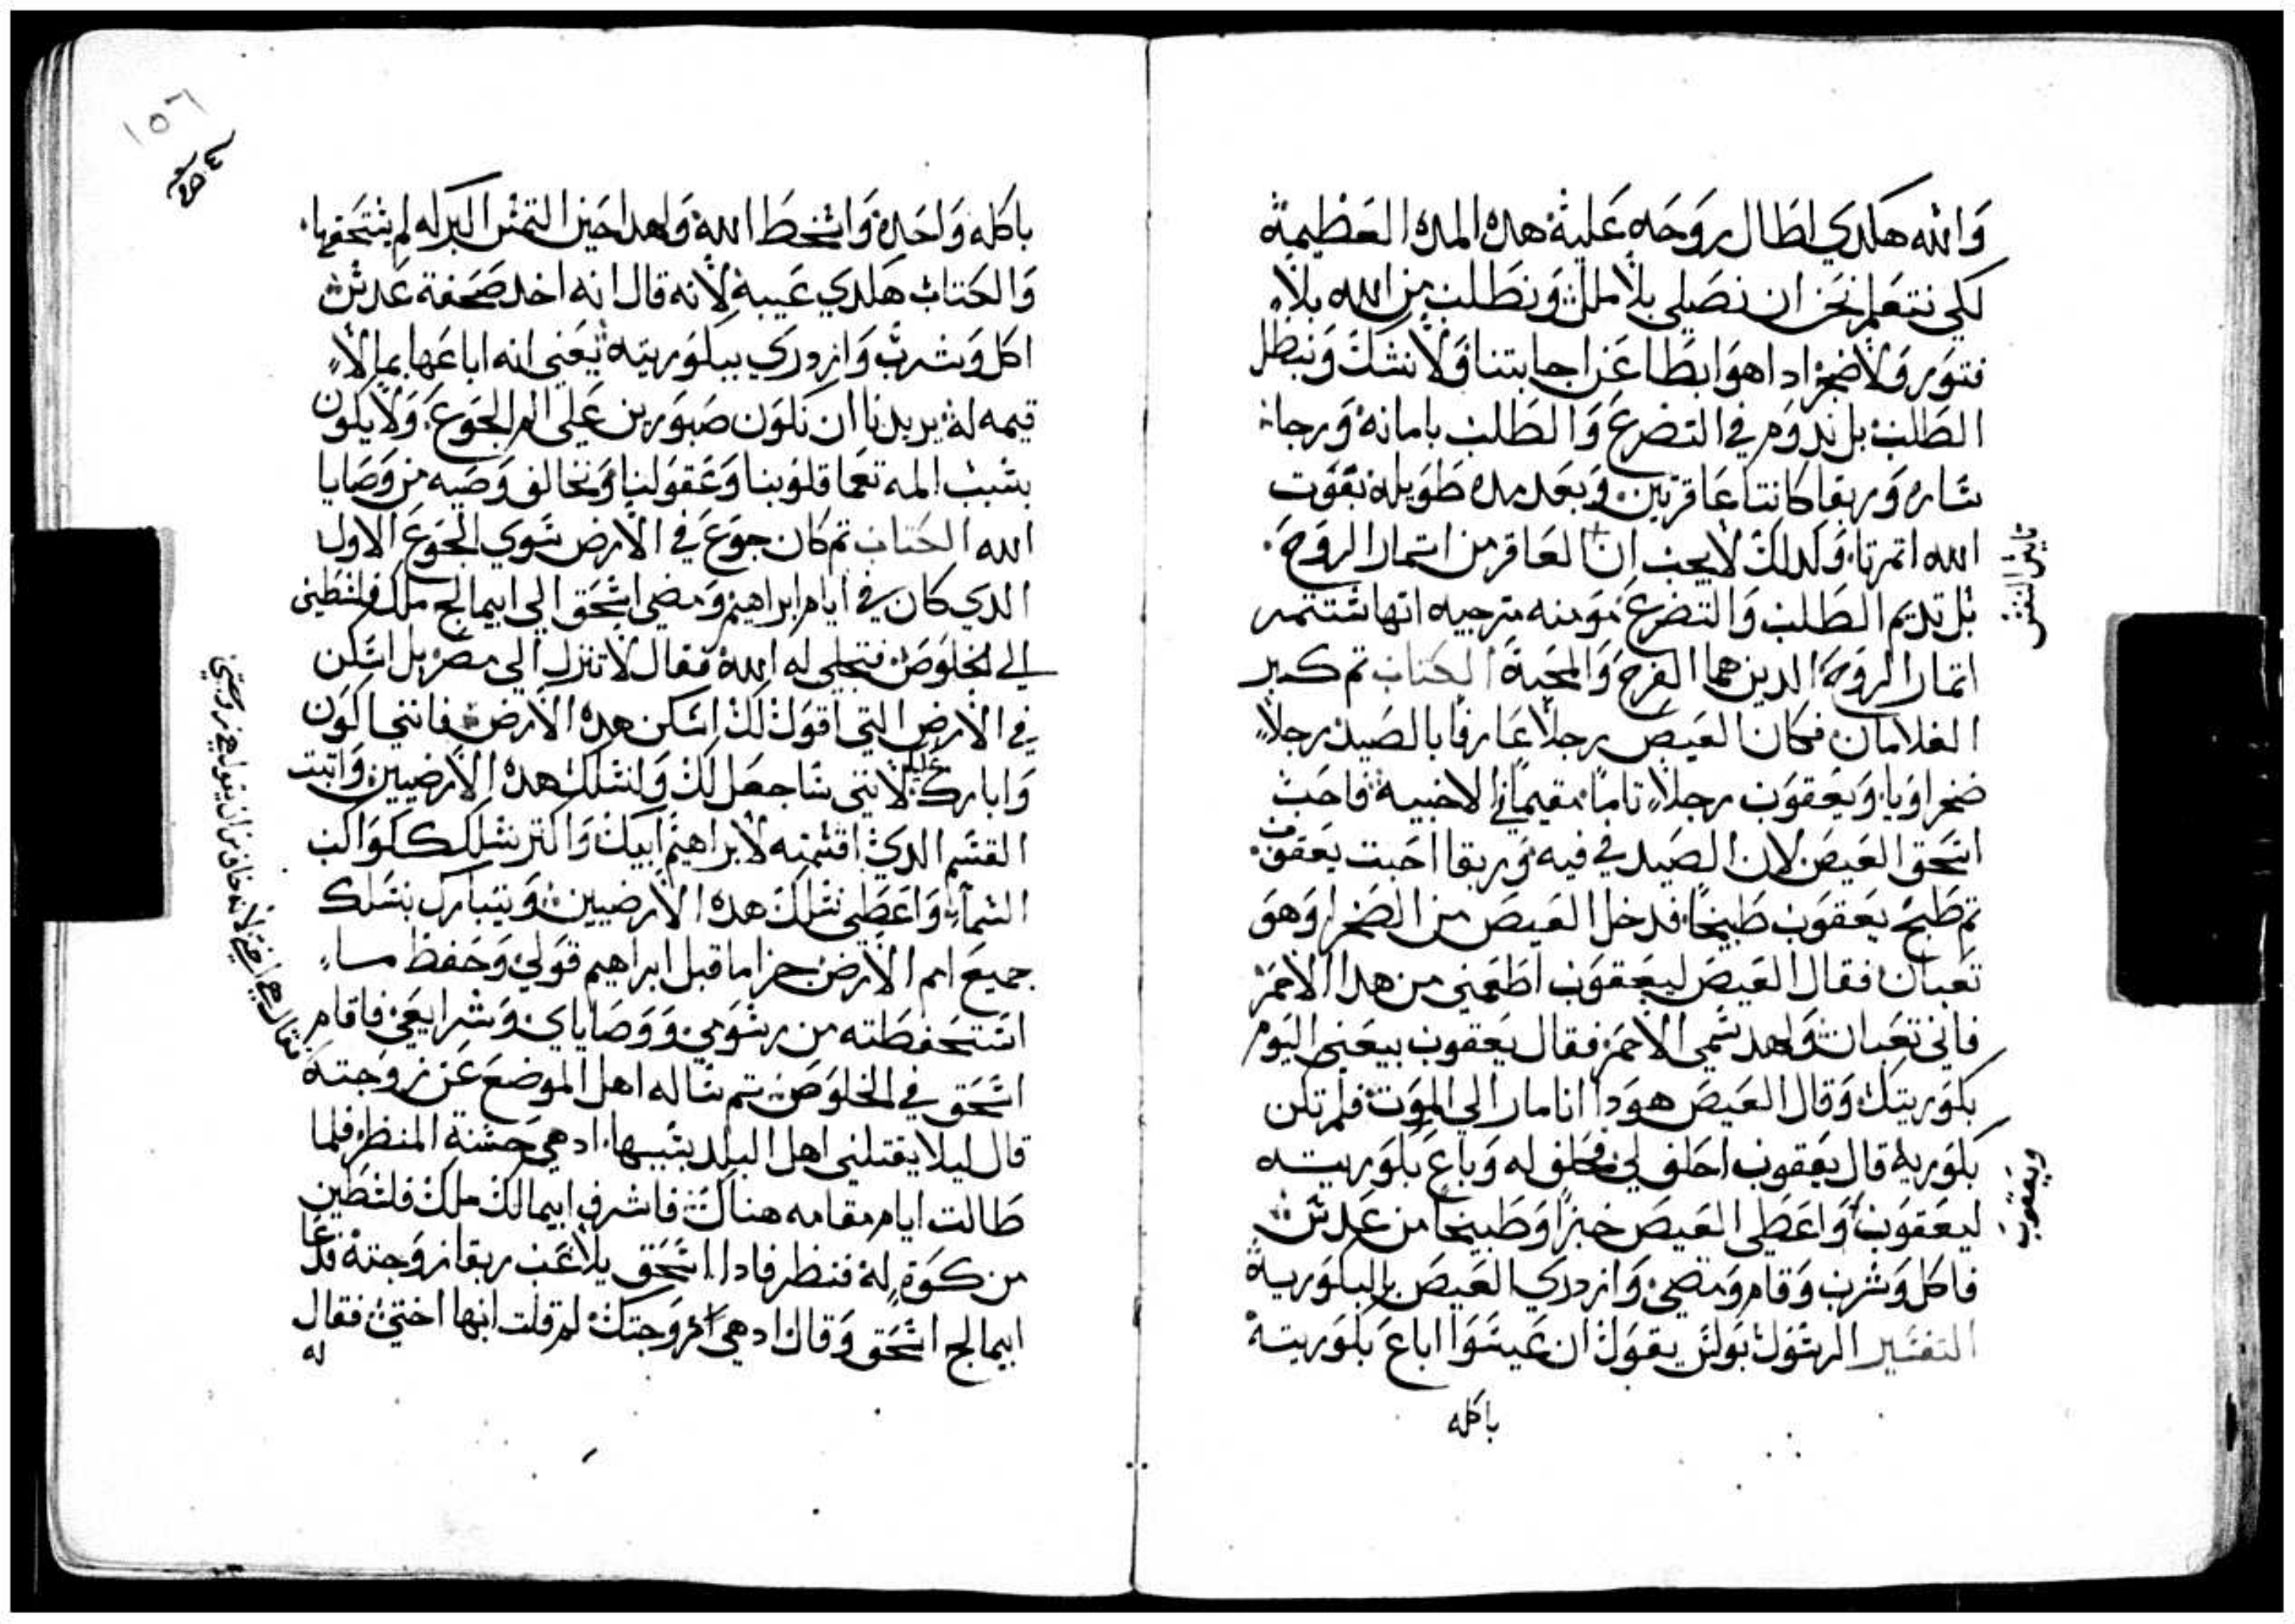 والله هكدي اطال روحه عليه هده المده العظيمه
لكي نتعلم نحن ان نصلي بلا ملل ونطلب من الله بلا
فتور ولا ضجر ادا هو ابطا عن اجابتنا ولا نشك ونبطل
الطلب بل ندوم في التضرع والطلب بامانه ورجاء
ساره وربقا كانتا عاقرتين وبعد مده طويله بقوت
الله اتمرتا وكدلك لا يجب ان العاقر من اتمار الروح
بل تديم الطلب والتضرع مومنه مترجيه انها ستتمر
اتمار الروح الدين هما الفرح والمحبة الكتاب تم كبر
الغلامان فكان العيص رجلا عارفا بالصيد رجلا
صحراويا ويعقوب رجلا تاما مقيما في الاخبيه فاحب
اسحق العيص لان الصيد في فيه وربقا احبت يعقوب
تم طبخ يعقوب طبيخا فدخل العيص من الصحرا وهو
تعبان فقال العيص ليعقوب اطعمني من هدا الاحمر
فاني تعبان ولهدا سمي الاحمر فقال يعقوب بيعني اليوم
بكوريتك وقال العيص هودا انا مار الي الموت فلم تكن
بكوريه قال يعقوب احلف لي فحلف له وباع بكوريته
ليعقوب واعطي العيص خبزا وطبيخا من عدس
فاكل وشرب وقام ومضي وازدري العيص بالبكوريه
التفسير الرسول بولس يقول ان عيسوا اباع بكوريته
باكله
ويعقوب
١٥٦
باكله واحده واسخط الله ولهدا حين التمس البركه لم يستحقها
والكتاب هكدي عيبه لانه قال انه اخد صحفة عدس
اكل وشرب وازدري ببكوريته يعني انه اباعها بما لا
قيمه له يريدنا ان نكون صبورين علي الم الجوع ولا يكون
بسبب المه تعما قلوبنا وعقولنا ونخالف وصيه من وصايا
الله الكتاب تم كان جوع في الارض سوي الجوع الاول
الدي كان في ايام ابراهيم ومضي اسحق الي ابيمالخ ملك فلسطين
الي الخلوص فتجلي له الله فقال لا تنزل الي مصر بل اسكن
في الارض التي اقول لك اسكن هده الارض فانني اكون
واباركك لانني ساجعل لك ولنسلك هده الارضيين واتبت
القسم الدي اقسمته لابراهيم ابيك واكتر نسلك ككواكب
السماء واعطي نسلك هده الارضيين ويتبارك بنسلك
جميع امم الارض جزا ما قبل ابراهيم قولي وحفظ ساء
استحفظته من رسومي ووصاياي وشرايعي فاقام
اسحق في الخلوص تم ساله اهل الموضع عن زوجته
قال ليلا يقتلني اهل البلد بسببها اد هي حسنة المنظر فلما
طالت ايام مقامه هناك فاشرف ابيمالك ملك فلسطين
من كوة له فنظر فادا اسحق يلاعب ربقا زوجته فدعا
ابيمالخ اسحق وقال اد هي زوجتك لم قلت انها اختي فقال
له
فقال هي اختي لانه خاف من ان يقول هي زوجتي